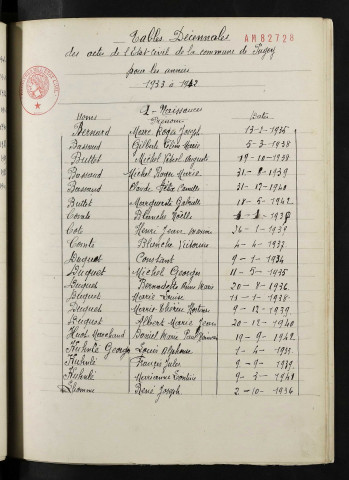 Tables Décennales
AM 82728
des actes de l'Etat-civil de la commune de Pugey
pour les années
1933 à 1942
1- Naissances
Noms Prénoms Dates
Bernard Marc Roger Joseph 13-2-1935
Bassand Gilbert Marie 5-3-1938
Bullet Michel Auguste 19-10-1938
Bassand Michel Roger Marie 31-8-1939
Bassand Claude Félix Camille 31-12-1940
Bullet Marguerite Gabrielle 10-5-1942
Comte Blanche Noëlle
Cote Henri Jean 26-1-1937
Comte Blanche Victorine 4-4-1937
Daguet Constant 9-1-1934
Duquet Michel Georges 11-5-1935
Duquet Bernadette Marie 20-8-1936
Duquet Marie Louise 11-1-1938
Duquet Marie Thérèse Hortense 9-12-1939
Duquet Albert Marie Jean 20-12-1940
Huot Marchand Daniel Marie Paul 19-9-1942
Kuhnlé Georges Louis Alphonse 1-4-1935
Kuhnlé François Jules 9-9-1939
Kuhnlé Marianne 9-3-1941
Lhomme René Joseph 2-10-1936